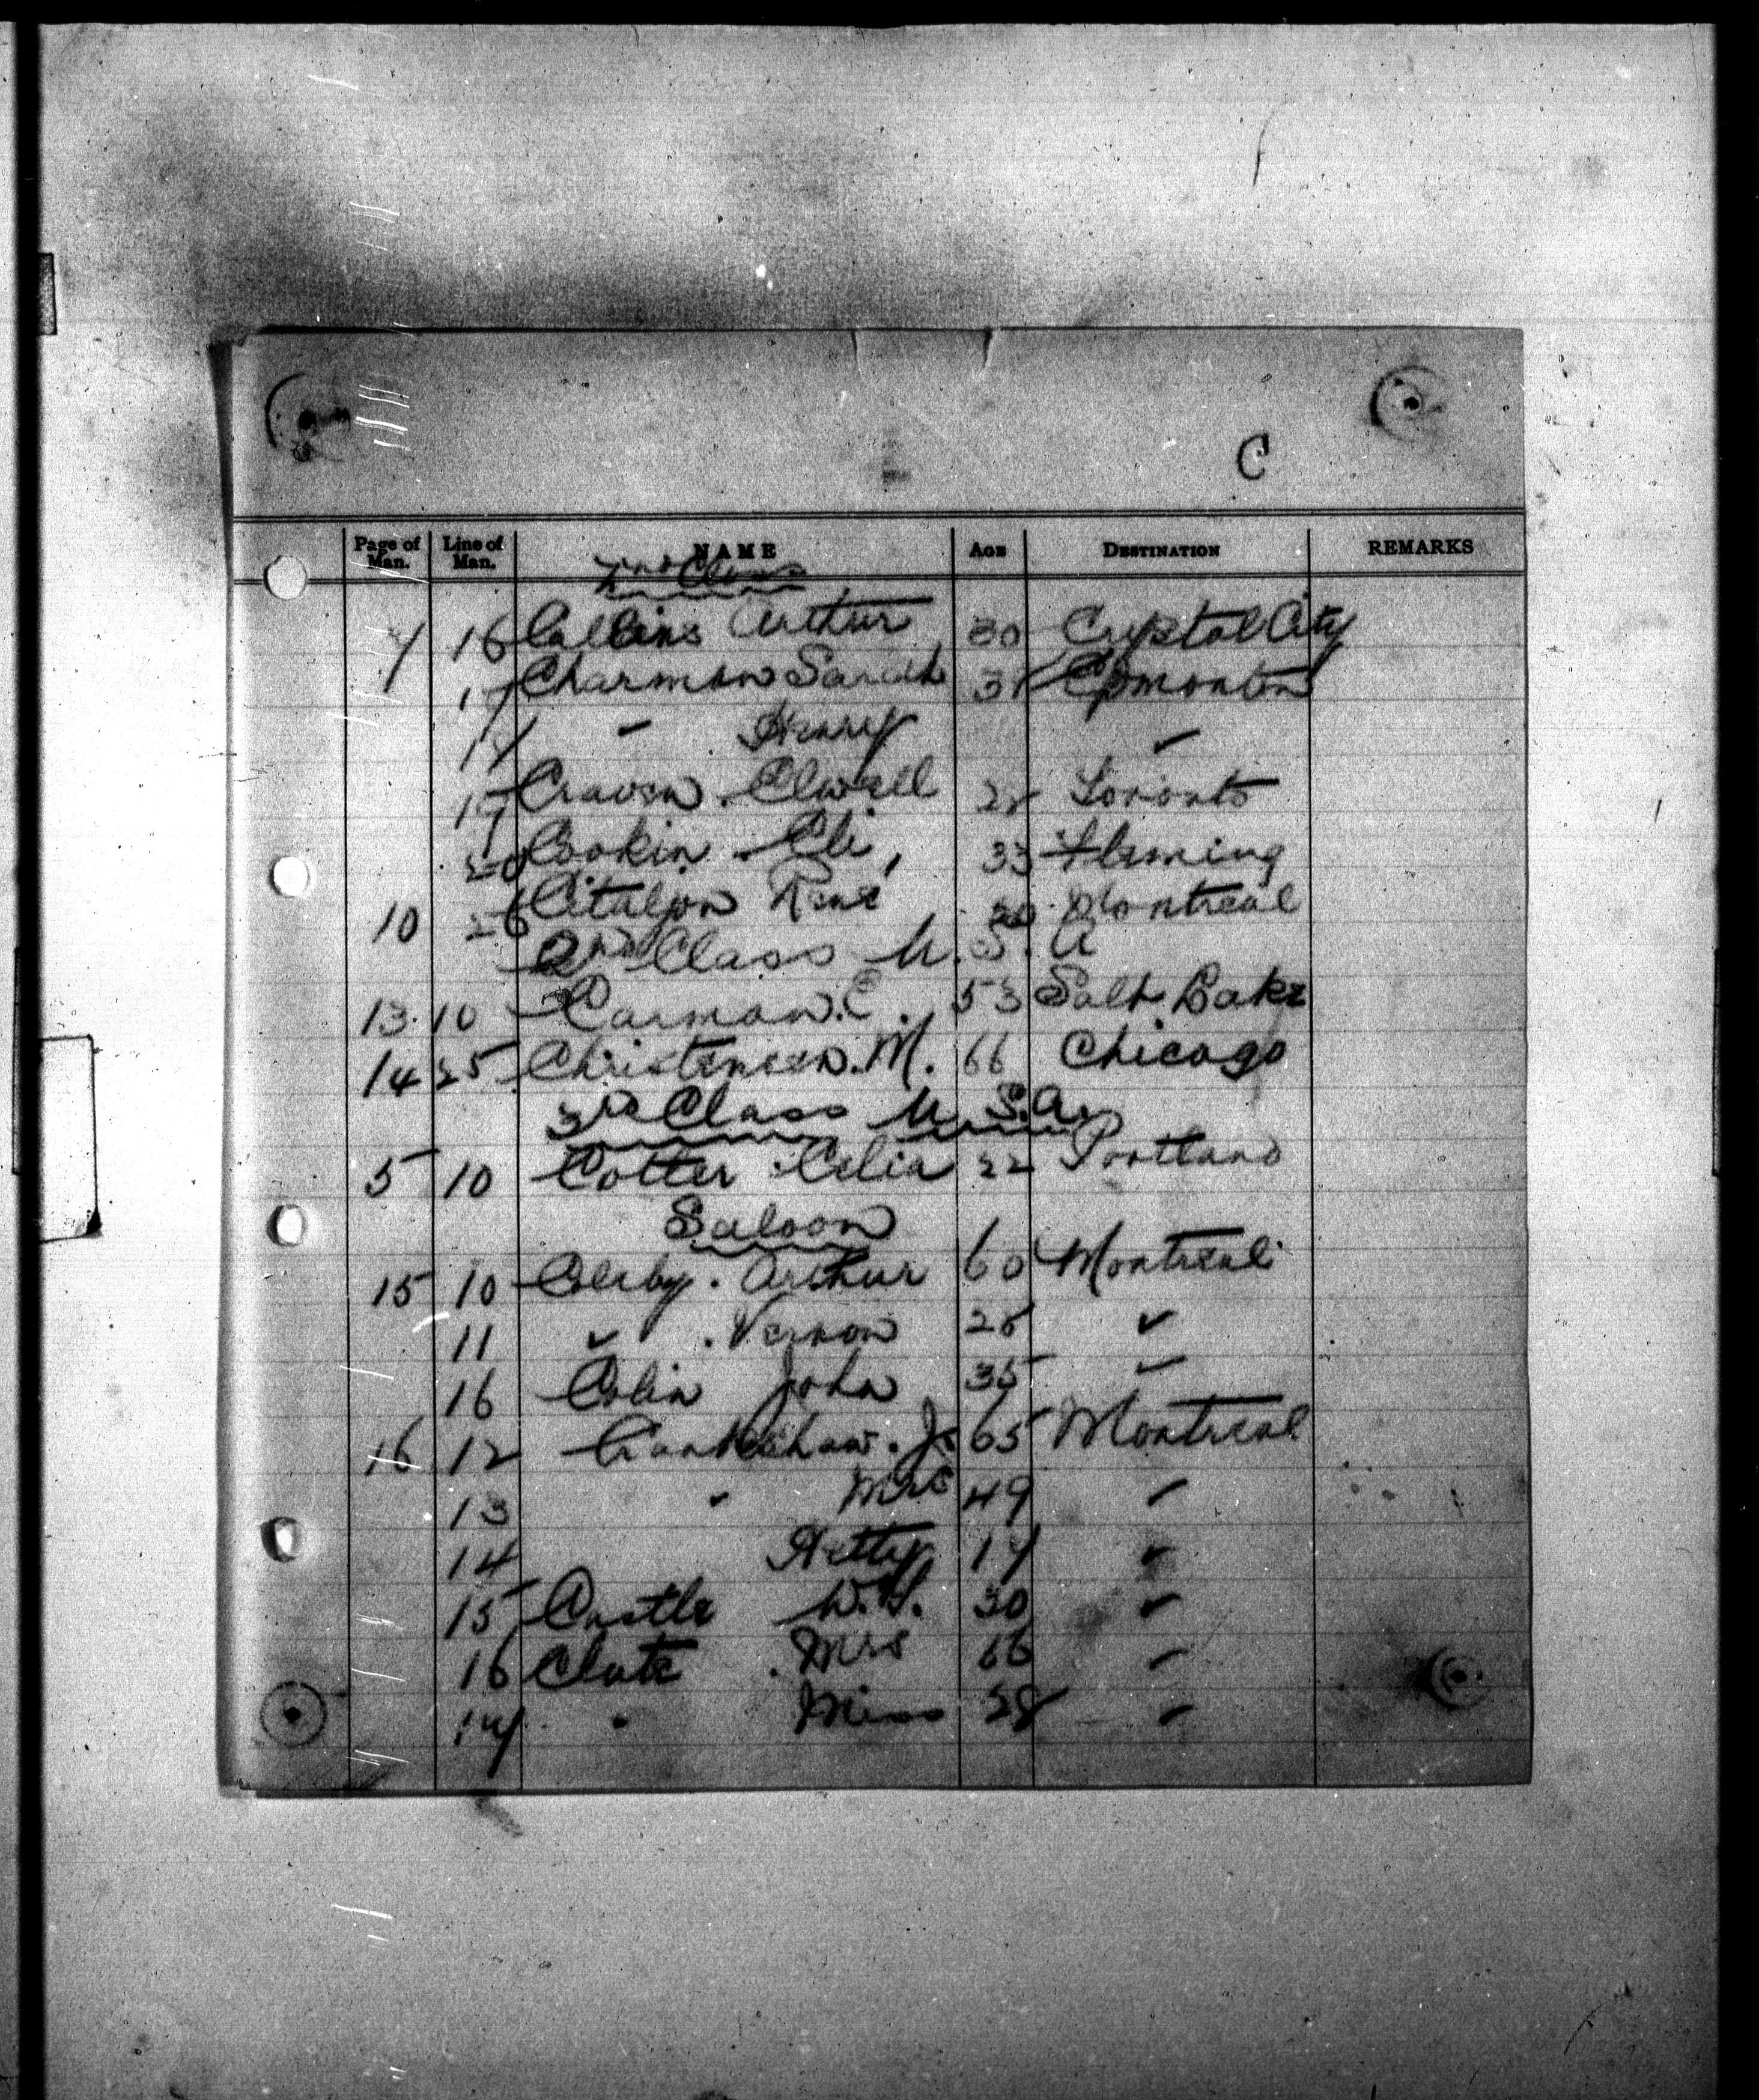 C
Page of Man. Line of Man. NAME AGE DESTINATION REMARKS
2nd Class
7 16 Collins Arthur 30 Crystal City
17 Charman Sarah 31 Edmonton
18 " Henry "
19 Craven Elwell 28 Toronto
20 Cookin Eli, 33 Fleming
10 26 René 20 Montreal
2nd Class U.S.A
13 10 Carman. C. 53 Salt Lake
14 25 Christensen. M. 66 Chicago
3rd Class U.S.A.
5 10 Cotter Celia 22 Portland
Saloon
15 10 Arthur 60 Montreal
11 " . Vernon 28 "
16 Colin John 35 "
16 12 Crankshaw. Js 65 Montreal
13 " Mrs 49 "
14 Hetty 17 "
15 Castle W.H. 30 "
16 Clute . Mrs 66 "
17 " Miss 28 "